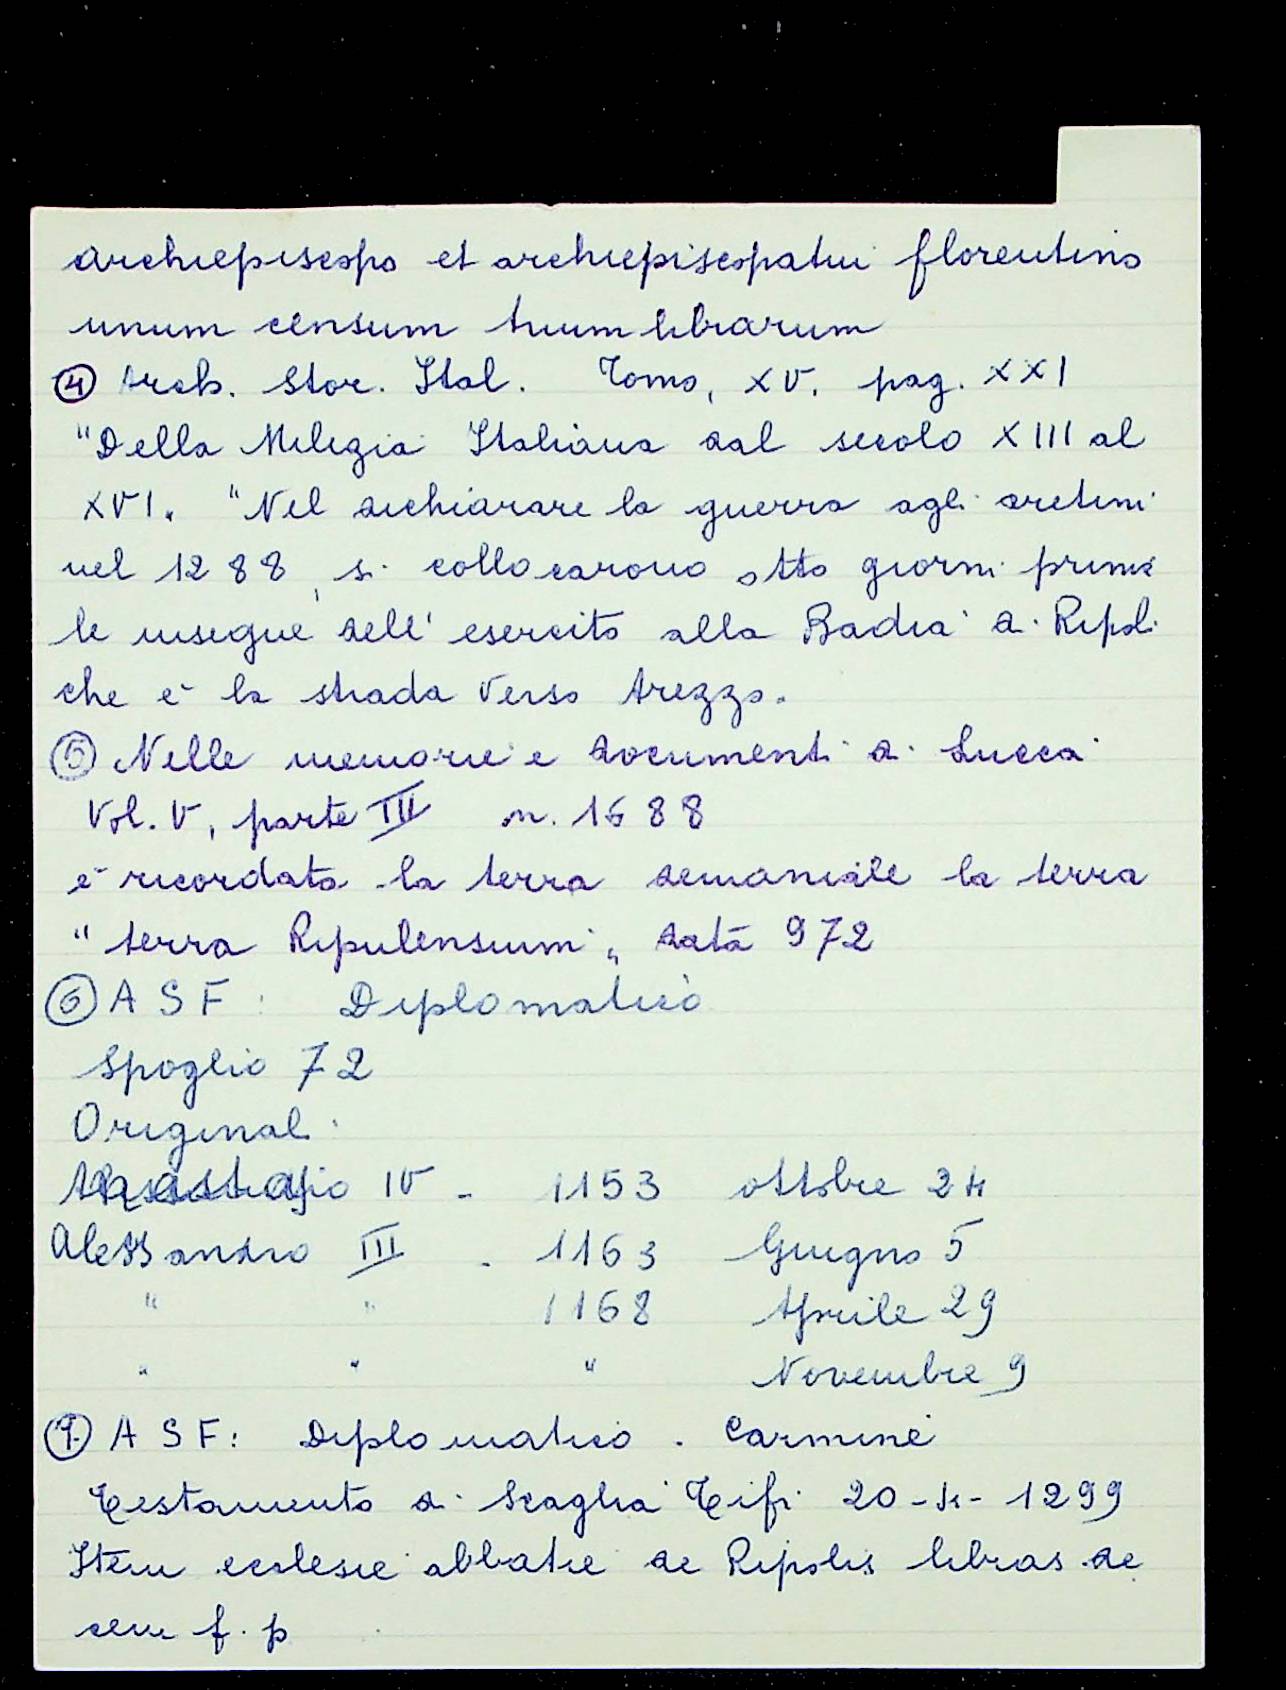 archiepiscopo et archiepiscopatui florentino
unum censum trium librarum
④ Arch. Stor. Ital. Tomo, XV. pag. XXI
"Della Milizia Italiana dal secolo XIII al
XVI„ "Nel dichiarare la guerra agli aretini
nel 1288, si collocarono otto giorni prima
le insegne dell' esercito alla Badia di Ripoli
che è la strada verso Arezzo.
⑤ Nelle memorie e documenti di Lucca
Vol. V, parte III n. 1688
è ricordata la terra demaniale la terra
" terra Ripulensium„ data 972
⑥ A S F: Diplomatico
Spoglio 72
Originali:
Anastasio IV - 1153 ottobre 24
Alessandro III - 1163 Giugno 5
" " 1168 Aprile 29
" " " Novembre 9
A S F: Diplomatico. Carmine
Testamento di Scaglia Tifi 20-4-1299
Item ecclesie abbatie de Ripolis libras de
cem f. p